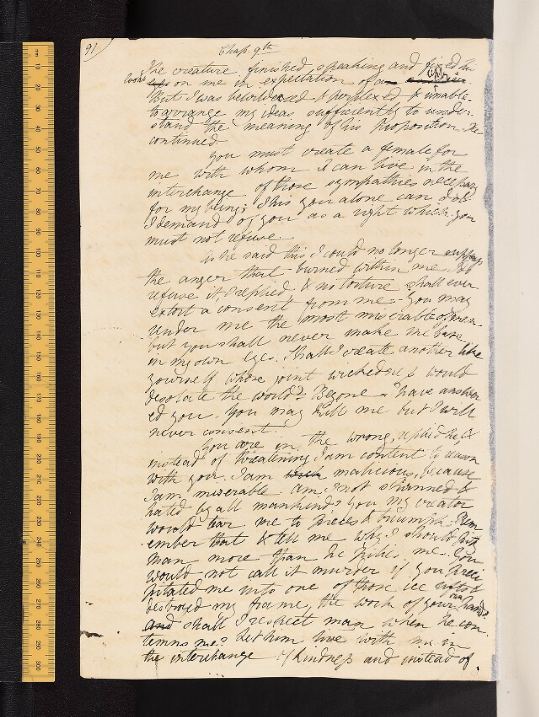 91
Chap 9th
The creature finished speaking and fixed his
looks on me in expectation of a reply
But I was bewildered & perplexed & unable
to arrange my ideas sufficiently to under-
stand the meaning of his proposition. He
continued
You must create a female for
me with whom I can live in the
interchange of those sympathies necessary
for my being; This you alone can do &
I demand of you as a right which you
must not refuse.
As he said this I could no longer suppress
the anger that burned within me
refuse it, I replied & no torture shall ever
extort a consent from me – You may
render me the most miserable of men –
but you shall never make me base
in my own eyes. Shall I create another like
yourself whose joint wickedness would
desolate the world? Begone I have answer
ed you. You may kill me but I will
never consent.
You are in the wrong, replied he, &
instead of threatening I am content to reason
with you. I am malicious, because
I am miserable am I not shunned &
hated by all mankind? You my creator
would tear me to pieces & triumph. Rem
ember that & tell me why I should pity
man more than he pities me. You
would not call it murder if you preci
pitated me into one of those ice rifts &
destroyed my frame, the work of your own hands
and shall I respect man when he con
temns me? Let him live with me in
the interchange of kindness and instead of